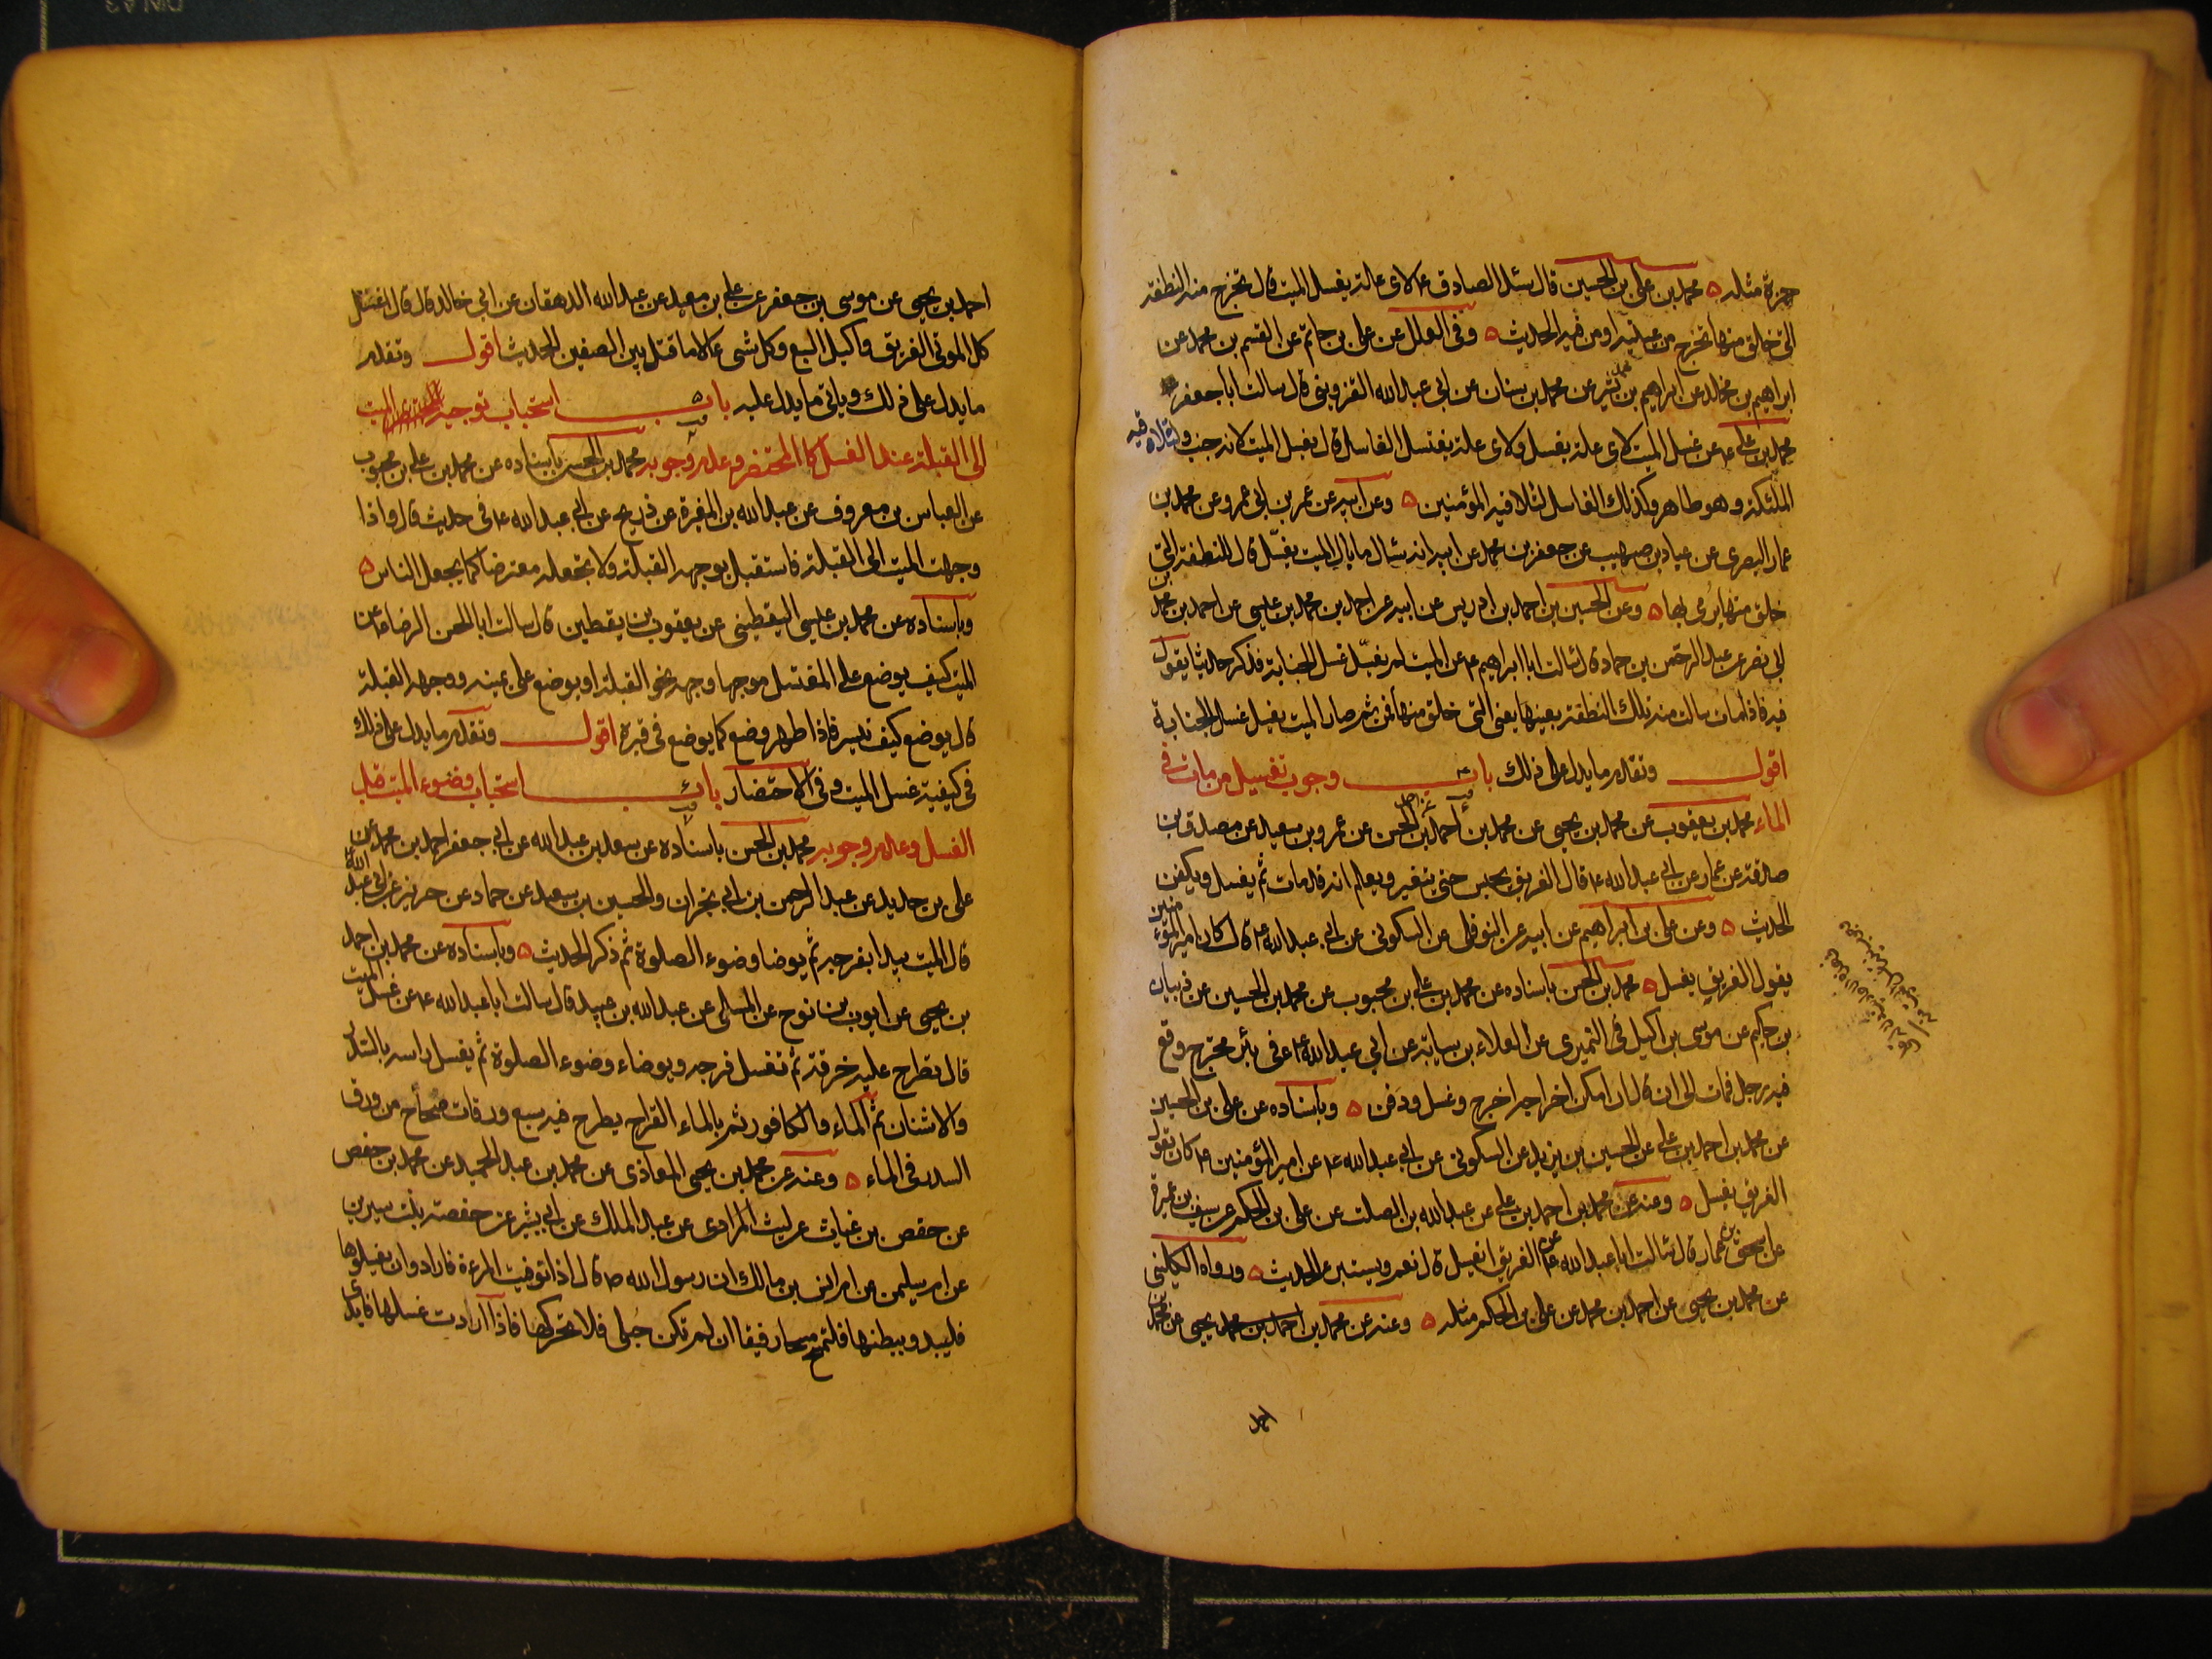 حمزة مثله محمد بن علي بن الحسين قال سئل الصادق ع لاى علة يغسل الميت قال تخرج منه النطفة
التى خلق منها تخرج من عينيه او من فيه الحديث وفى العلل عن على بن حاتم عن القسم بن محمد عن
ابراهيم بن مخلد عن ابراهيم بن محمد بن بشير عن محمد بن سنان عن ابى عبد الله القزوينى قال سالت ابا جعفر
محمد بن على ع عن غسل الميت لاى علة يغسل ولاى علة يغتسل الغاسل قال يغسل الميت لانه جنب ولتلاقيه
الملئكة وهو طاهر وكذلك الغاسل لتلاقيه المؤمنين وعن ابيه عن عمر بن ابى عمر وعن محمد بن
عمار البصرى عن عباد بن صهيب عن جعفر بن محمد عن ابيه انه سئل ما بال الميت يغسل قال للنطفة التى
خلق منها يرمى بها وعن الحسين بن احمد بن ادريس عن ابيه عن احمد بن محمد بن عيسى عن احمد بن محمد بن
ابى نصر عن عبد الرحمن بن حماد قال سالت ابا ابراهيم ع عن الميت لم يغسل غسل الجنابة فذكر حديثا يقول
فيه فاذا مات سالت منه تلك النطفة بعينها يعنى التى خلق منها فمن ثم صار الميت يغسل غسل الجنابة
اقول وتقدم ما يدل على ذلك باب وجوب تغسيل من مات فى
الماء محمد بن يعقوب عن محمد بن يحيى عن محمد بن احمد عن احمد بن الحسن عن عمرو بن سعيد عن مصدق بن
صدقة عن عمار عن ابى عبد الله ع قال الغريق يحبس حتى يتغير ويعلم انه قد مات ثم يغسل ويكفن
الحديث وعن على بن ابراهيم عن ابيه عن النوفلى عن السكونى عن ابى عبد الله ع قال كان امير المؤمنين
يقول الغريق يغسل محمد بن الحسن باسناده عن محمد بن على بن محبوب عن محمد بن الحسين عن ذبيان
بن حكيم عن موسى بن اكيل فى النميرى عن العلاء بن سيابة عن ابى عبد الله ع فى بئر مخرج وقع
فيه رجل فمات الى ان قال ان امكن اخراجه اخرج وغسل ودفن وباسناده عن على بن الحسين
عن محمد بن احمد بن على عن الحسين بن يزيد عن السكونى عن ابى عبد الله ع عن امير المؤمنين ع كان يقول
الغريق يغسل وعنه عن محمد بن احمد بن على عن عبد الله بن الصلت عن على بن الحكم عن سيف بن عميرة
عن اسحق بن عمار قال سالت ابا عبد الله ع عن الغريق ايغسل قال نعم ويستبرء الحديث ورواه الكلينى
عن محمد بن يحيى عن احمد بن محمد عن على بن الحكم مثله وعنه عن محمد بن احمد بن محمد يحيى عن محمد بن
احمد
احمد بن يحيى عن موسى بن جعفر عن على بن معبد عن عبد الله الدهقان عن ابى خالد قال قال اغسل
كل الموتى الغريق واكيل السبع وكل شىء الا ما قتل بين الصفين الحديث اقول وتقدم
ما يدل على ذلك وياتى ما يدل عليه باب استحباب توجيه الميت
الى القبلة عند الغسل كالمحتضر وعدم وجوبه محمد بن الحسن باسناده عن محمد بن على بن محبوب
عن العباس بن معروف عن عبد الله بن المغيرة عن ذريح عن ابى عبد الله ع فى حديث قال واذا
وجهت الميت الى القبلة فاستقبل بوجهه القبلة ولا تجعله معترضا كما يجعل الناس
وباسناده عن محمد بن عيسى اليقطينى عن يعقوب بن يقطين قال سالت ابا الحسن الرضا ع عن
الميت كيف يوضع على المغتسل موجها وجهه نحو القبلة او يوضع على يمينه ووجهه القبلة
قال يوضع كيف تيسر فاذا طهر وضع كما يوضع فى قبره اقول وتقدم ما يدل على ذلك
فى كيفية غسل الميت وفى الاحتضار باب استحباب وضوء الميت قبل
الغسل وعدم وجوبه محمد بن الحسن باسناده عن سعد بن عبد الله عن ابى جعفر احمد بن محمد عن
على بن حديد عن عبد الرحمن بن ابى نجران والحسين بن سعيد عن حماد عن حريز عن ابى عبد الله ع
قال الميت يبدا بفرجه ثم يوضا وضوء الصلوة ثم ذكر الحديث وباسناده عن محمد بن احمد
بن يحيى عن ايوب بن نوح عن المسلى عن عبد الله بن عبيد قال سالت ابا عبد الله ع عن غسل الميت
قال تطرح عليه خرقة ثم تغسل فرجه ويوضاء وضوء الصلوة ثم يغسل راسه بالسدر
والاشنان ثم الماء والكافور ثم بالماء القراح يطرح فيه سبع ورقات صحاح من ورق
السدر فى الماء وعنه عن محمد بن يحيى المعاذى عن محمد بن عبد الحميد عن محمد بن حفص
عن حفص بن غياث عن ليث المرادى عن عبد الملك عن ابى بشير عن حفصة بنت سيرين
عن ام سليمن عن ام انس بن مالك ان رسول الله ص قال اذا توفيت المرءة فارادوا ان يغسلوها
فليبدوا ببطنها فلتمسح مسحا رفيقا ان لم تكن حبلى فلا تحركها فاذا اردت غسلها فابدى